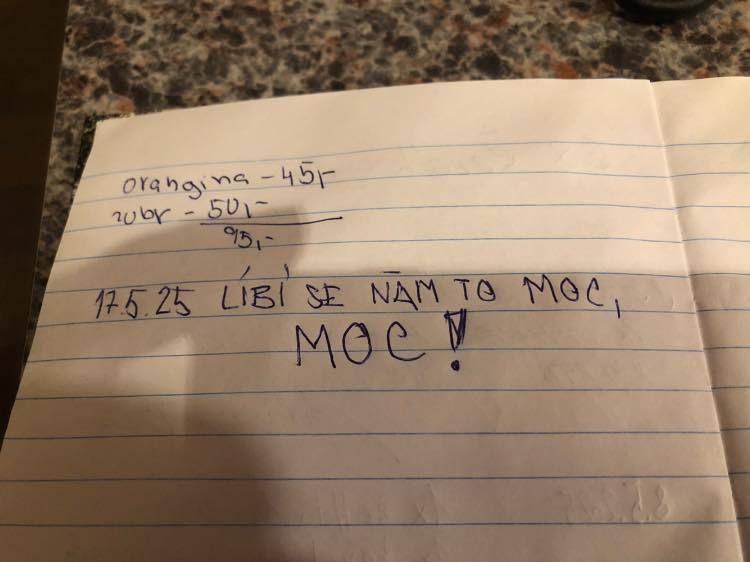 orangina - 45,-
zubr - 50,-
95,-
17.5.25 LÍBÍ SE NÁM TO MOC,
MOC!